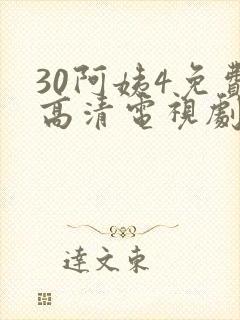 30阿姨4免費
高清電視劇
達文東